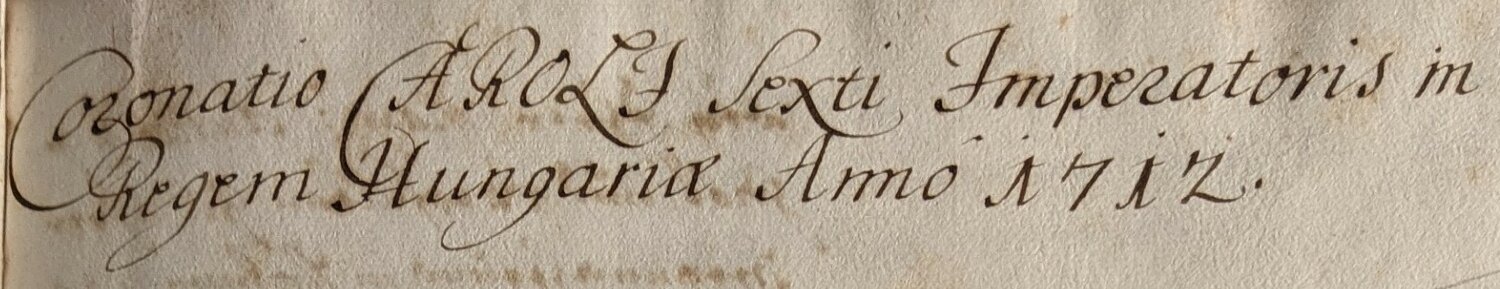 Coronatio CAROLI Sexti Imperatoris in
Regem Hungariæ Anno 1712.